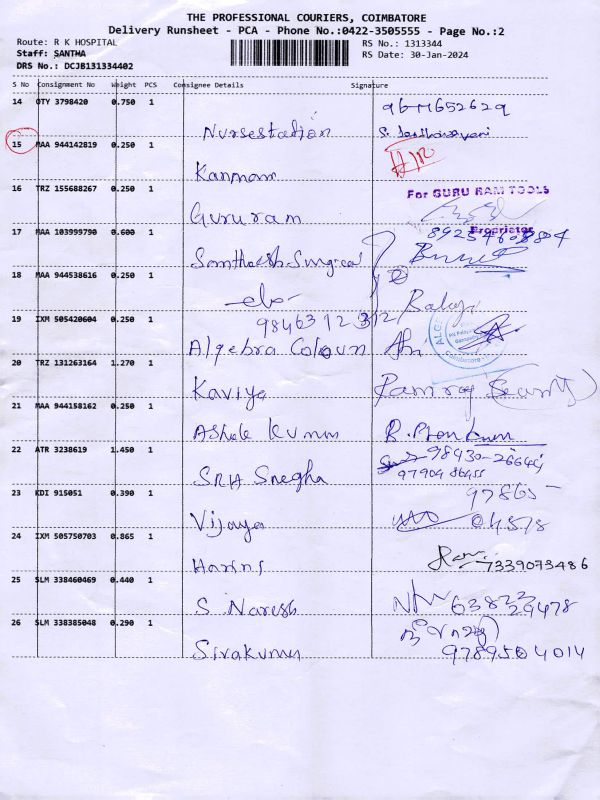 THE PROFESSIONAL COURIERS, COIMBATORE
Delivery Runsheet - PCA - Phone No.:0422-3505555 - Page No.:2
Route: R K HOSPITAL
RS No.: 1313344
Staff: SANTHA
RS Date: 30-Jan-2024
DRS No.: DCJB131334402
S No Consignment No Weight PCS Consignee Details Signature
14 OTY 3798420 0.750 1
Nursestation
15 MAA 944142819 0.250 1
Kannan
16 TRZ 155688267 0.250 1
For GURU RAM TOOLS
Guru ram
Proprietor
17 MAA 103999790 0.600 1
Santhosh Surgical
18 MAA 944538616 0.250 1
Balaji
19 IXM 505420604 0.250 1
9846312312
Algebra Coloun
Coimbatore
20 TRZ 131263164 1.270 1
Kaviya
21 MAA 944158162 0.250 1
Ashok Kumar
22 ATR 3238619 1.450 1
98430-26644
97904 86455
SRH Snegha
23 KDI 915051 0.390 1
97865
Vijaya
04578
24 IXM 505750703 0.865 1
7339073486
25 SLM 338460469 0.440 1
S Naresh
26 SLM 338385048 0.290 1
Sivakumar
9789504014